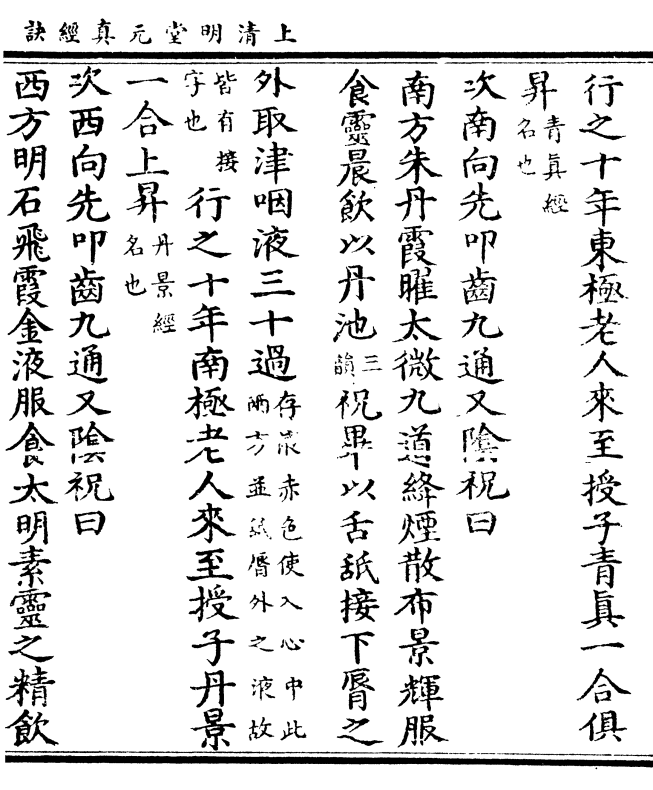 上清明堂元真經訣
行之十年東極老人來至授子青真一合俱
昇青真經名也
次南向先叩齒九通又陰祝曰
南方朱丹霞曜太微九道絳煙散布景輝服
食靈晨飲以丹池三韻祝畢以舌舐接下脣之
外取津咽液三十過存液赤色使入心中此兩方並舐脣外之液故
皆有接字也行之十年南極老人來至授子丹景
一合上昇丹景經名也
次西向先叩齒九通又陰祝曰
西方明石飛霞金液服食太明素靈之精飲